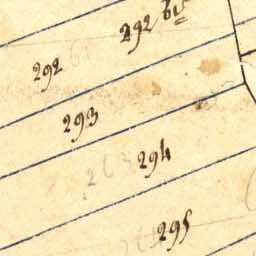 292 bis
292
293
294
295